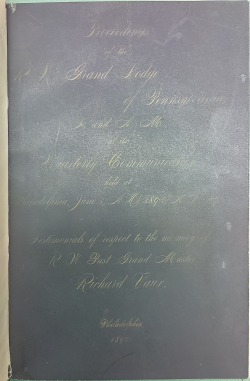 Proceedings
of the
R. W. Grand Lodge
of Pennsylvania
F. and A. M.
at its
Quarterly Communication
held at
Philadelphia, June
Testimonials of respect to the memory of
R. W. Past Grand Master
Richard Vaux.
Philadelphia